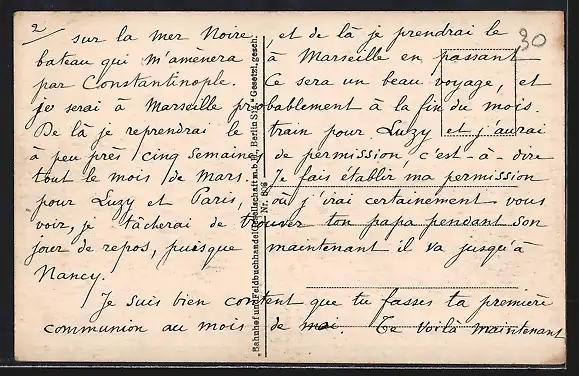 2/
30
sur la mer Noire et de là je prendrai le
bateau qui m'amènera à Marseille en passant
par Constantinople. Ce sera un beau voyage, et
je serai à Marseille probablement à la fin du mois.
De là je reprendrai le train pour Luzy et j'aurai
à peu près cinq semaines de permission, c'est-à-dire
tout le mois de Mars. Je fais établir ma permission
pour Luzy et Paris, où j'irai certainement vous
voir, je tâcherai de trouver ton papa pendant son
jour de repos, puisque maintenant il va jusqu'à
Nancy.
Je suis bien content que tu fasses ta première
communion au mois de mai. Te voilà maintenant
Bahnhof und Feldbuchhandelgesellschaft m.b.H., Berlin SW. Gesetzl. gesch.